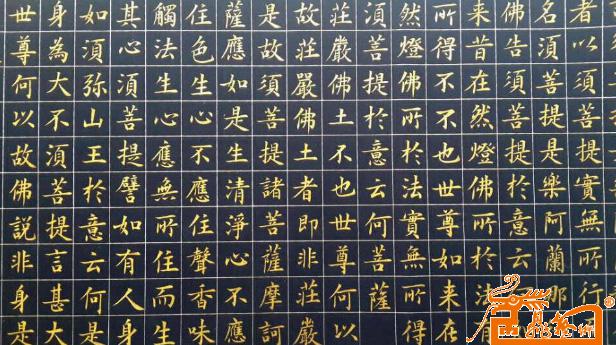 者以須菩提實無所行
名須菩提是樂阿蘭那
佛告須菩提於意云
來昔在然燈佛所於法有
所得不不也世尊如來在
然燈佛所於法實無所得
須菩提於意云何菩薩
莊嚴佛土不也世尊何以
故莊嚴佛土者即非莊嚴
是故須菩提諸菩薩摩訶
薩應如是生清淨心不應
住色生心不應住聲香味
觸法生心應無所住而生
其心須菩提譬如有人身
如須弥山王於意云何是
身為大不須菩提言甚大
世尊何以故佛說非身是